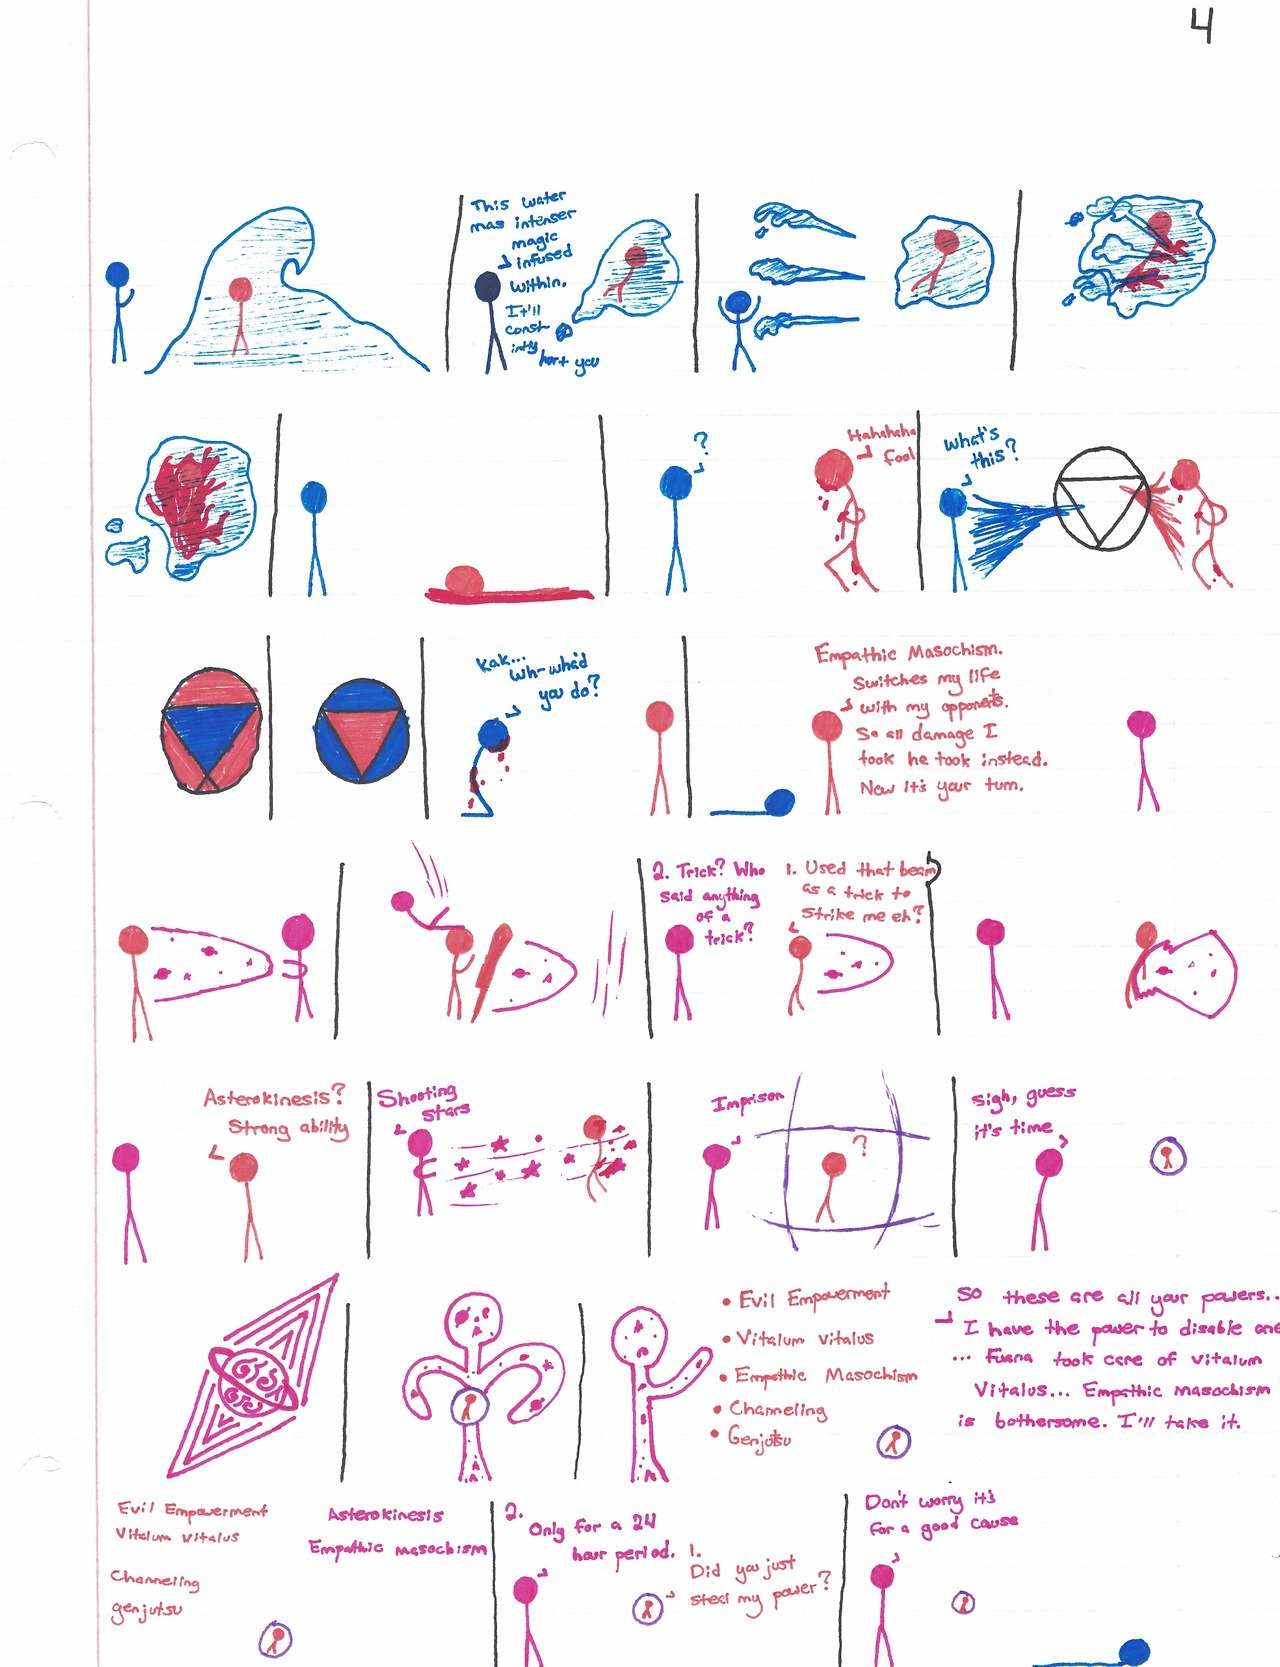 4
This water
mas intenser
magic
infused
within.
It'll
const-
intly
hart you
?
Hahahaha
fool
what's
this?
kak...
wh-wha'd
you do?
Empathic Masochism.
Switches my life
with my opponents.
So all damage I
took he took instead.
Now it's your turn.
2. Trick? Who
said anything
of a
trick?
1. Used that beam
as a trick to
strike me eh?
Asterokinesis?
Strong ability
Shooting
stars
Imprison
?
Sigh, guess
it's time
• Evil Empowerment
• Vitalum vitalus
• Empathic Masochism
• Channeling
• Genjutsu
So these are all your powers..
I have the power to disable one
... Fuana took care of vitalum
Vitalus... Empathic masochism
is bothersome. I'll take it.
Evil Empowerment
Vitalum vitalus
Channeling
genjutsu
Asterokinesis
Empathic masochism
2.
Only for a 24
hour period.
1.
Did you just
steal my power?
Don't worry it's
for a good cause